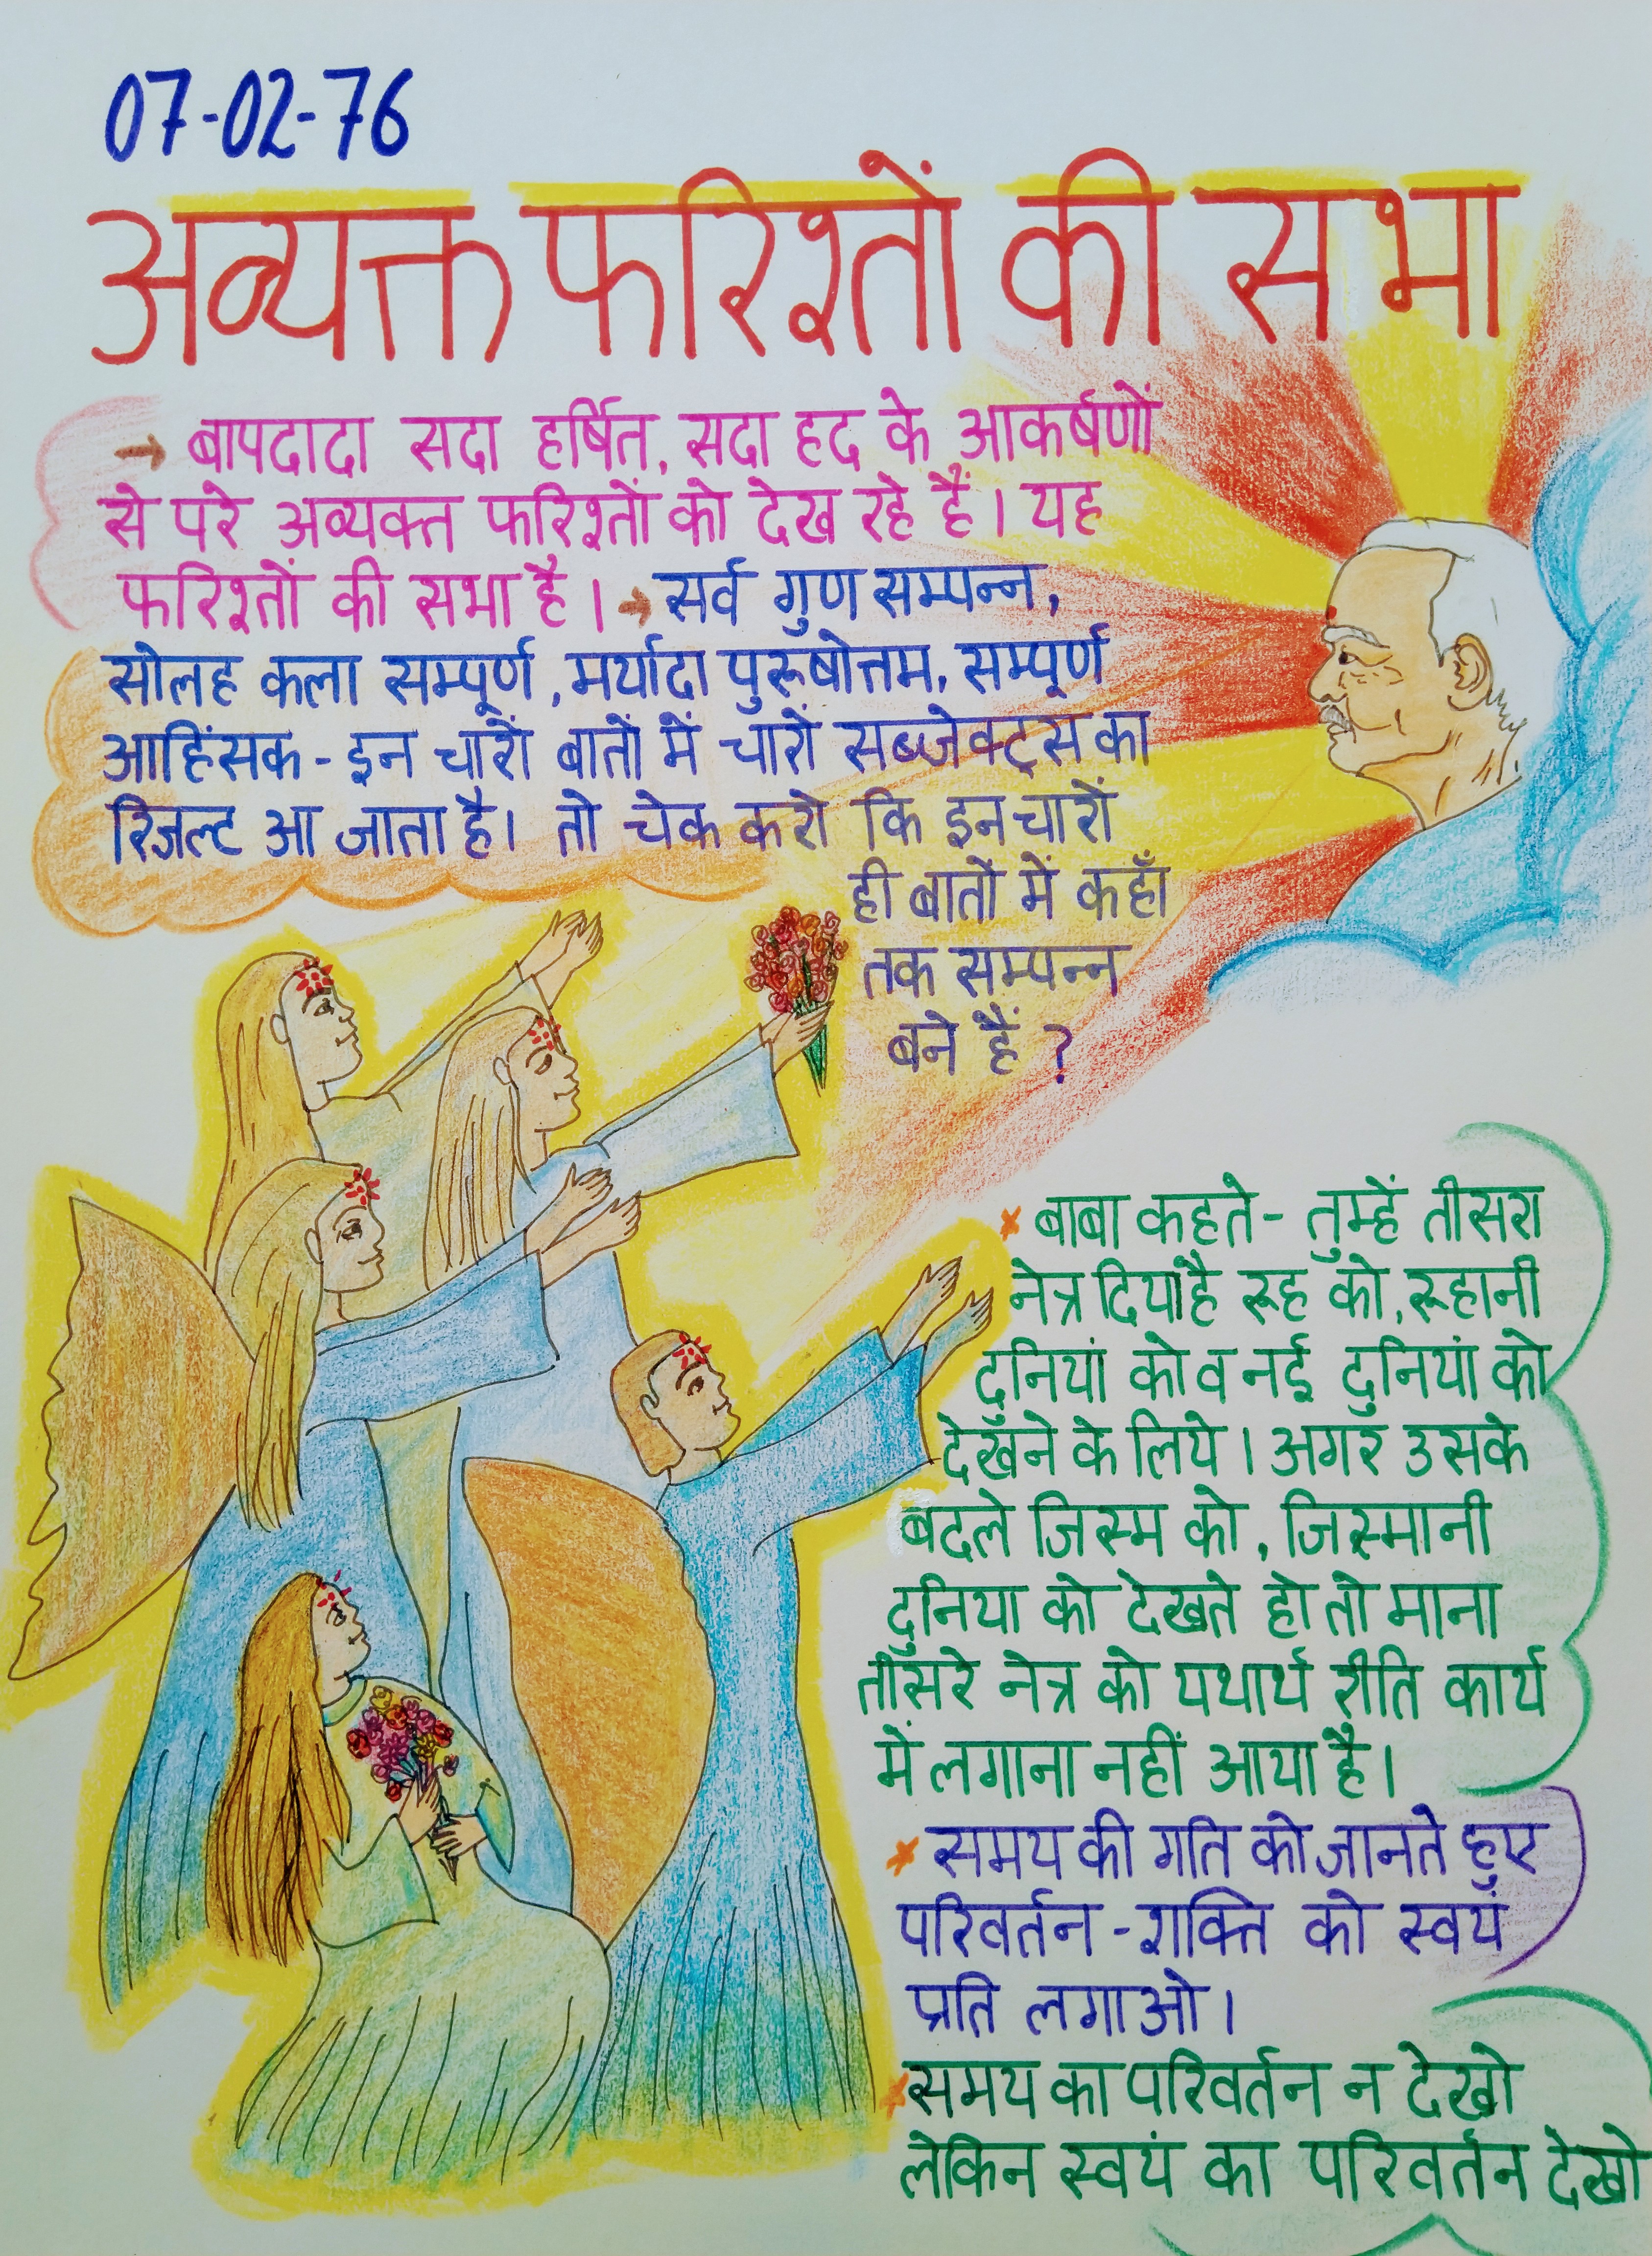 07-02-76
अव्यक्त फरिश्तों की सभा
→ बापदादा सदा हर्षित, सदा हद के आकर्षणों
से परे अव्यक्त फरिश्तों को देख रहे हैं। यह
फरिश्तों की सभा है। → सर्व गुण सम्पन्न,
सोलह कला सम्पूर्ण, मर्यादा पुरूषोत्तम, सम्पूर्ण
आहिंसक - इन चारों बातों में चारों सब्जेक्ट्स का
रिजल्ट आ जाता है। तो चेक करो कि इन चारों
ही बातों में कहाँ
तक सम्पन्न
बने हैं ?
* बाबा कहते - तुम्हें तीसरा
नेत्र दिया है रूह को, रूहानी
दुनियां को व नई दुनियां को
देखने के लिये। अगर उसके
बदले जिस्म को, जिस्मानी
दुनिया को देखते हो तो माना
तीसरे नेत्र को यथार्थ रीति कार्य
में लगाना नहीं आया है।
* समय की गति को जानते हुए
परिवर्तन - शक्ति को स्वयं
प्रति लगाओ।
* समय का परिवर्तन न देखो
लेकिन स्वयं का परिवर्तन देखो